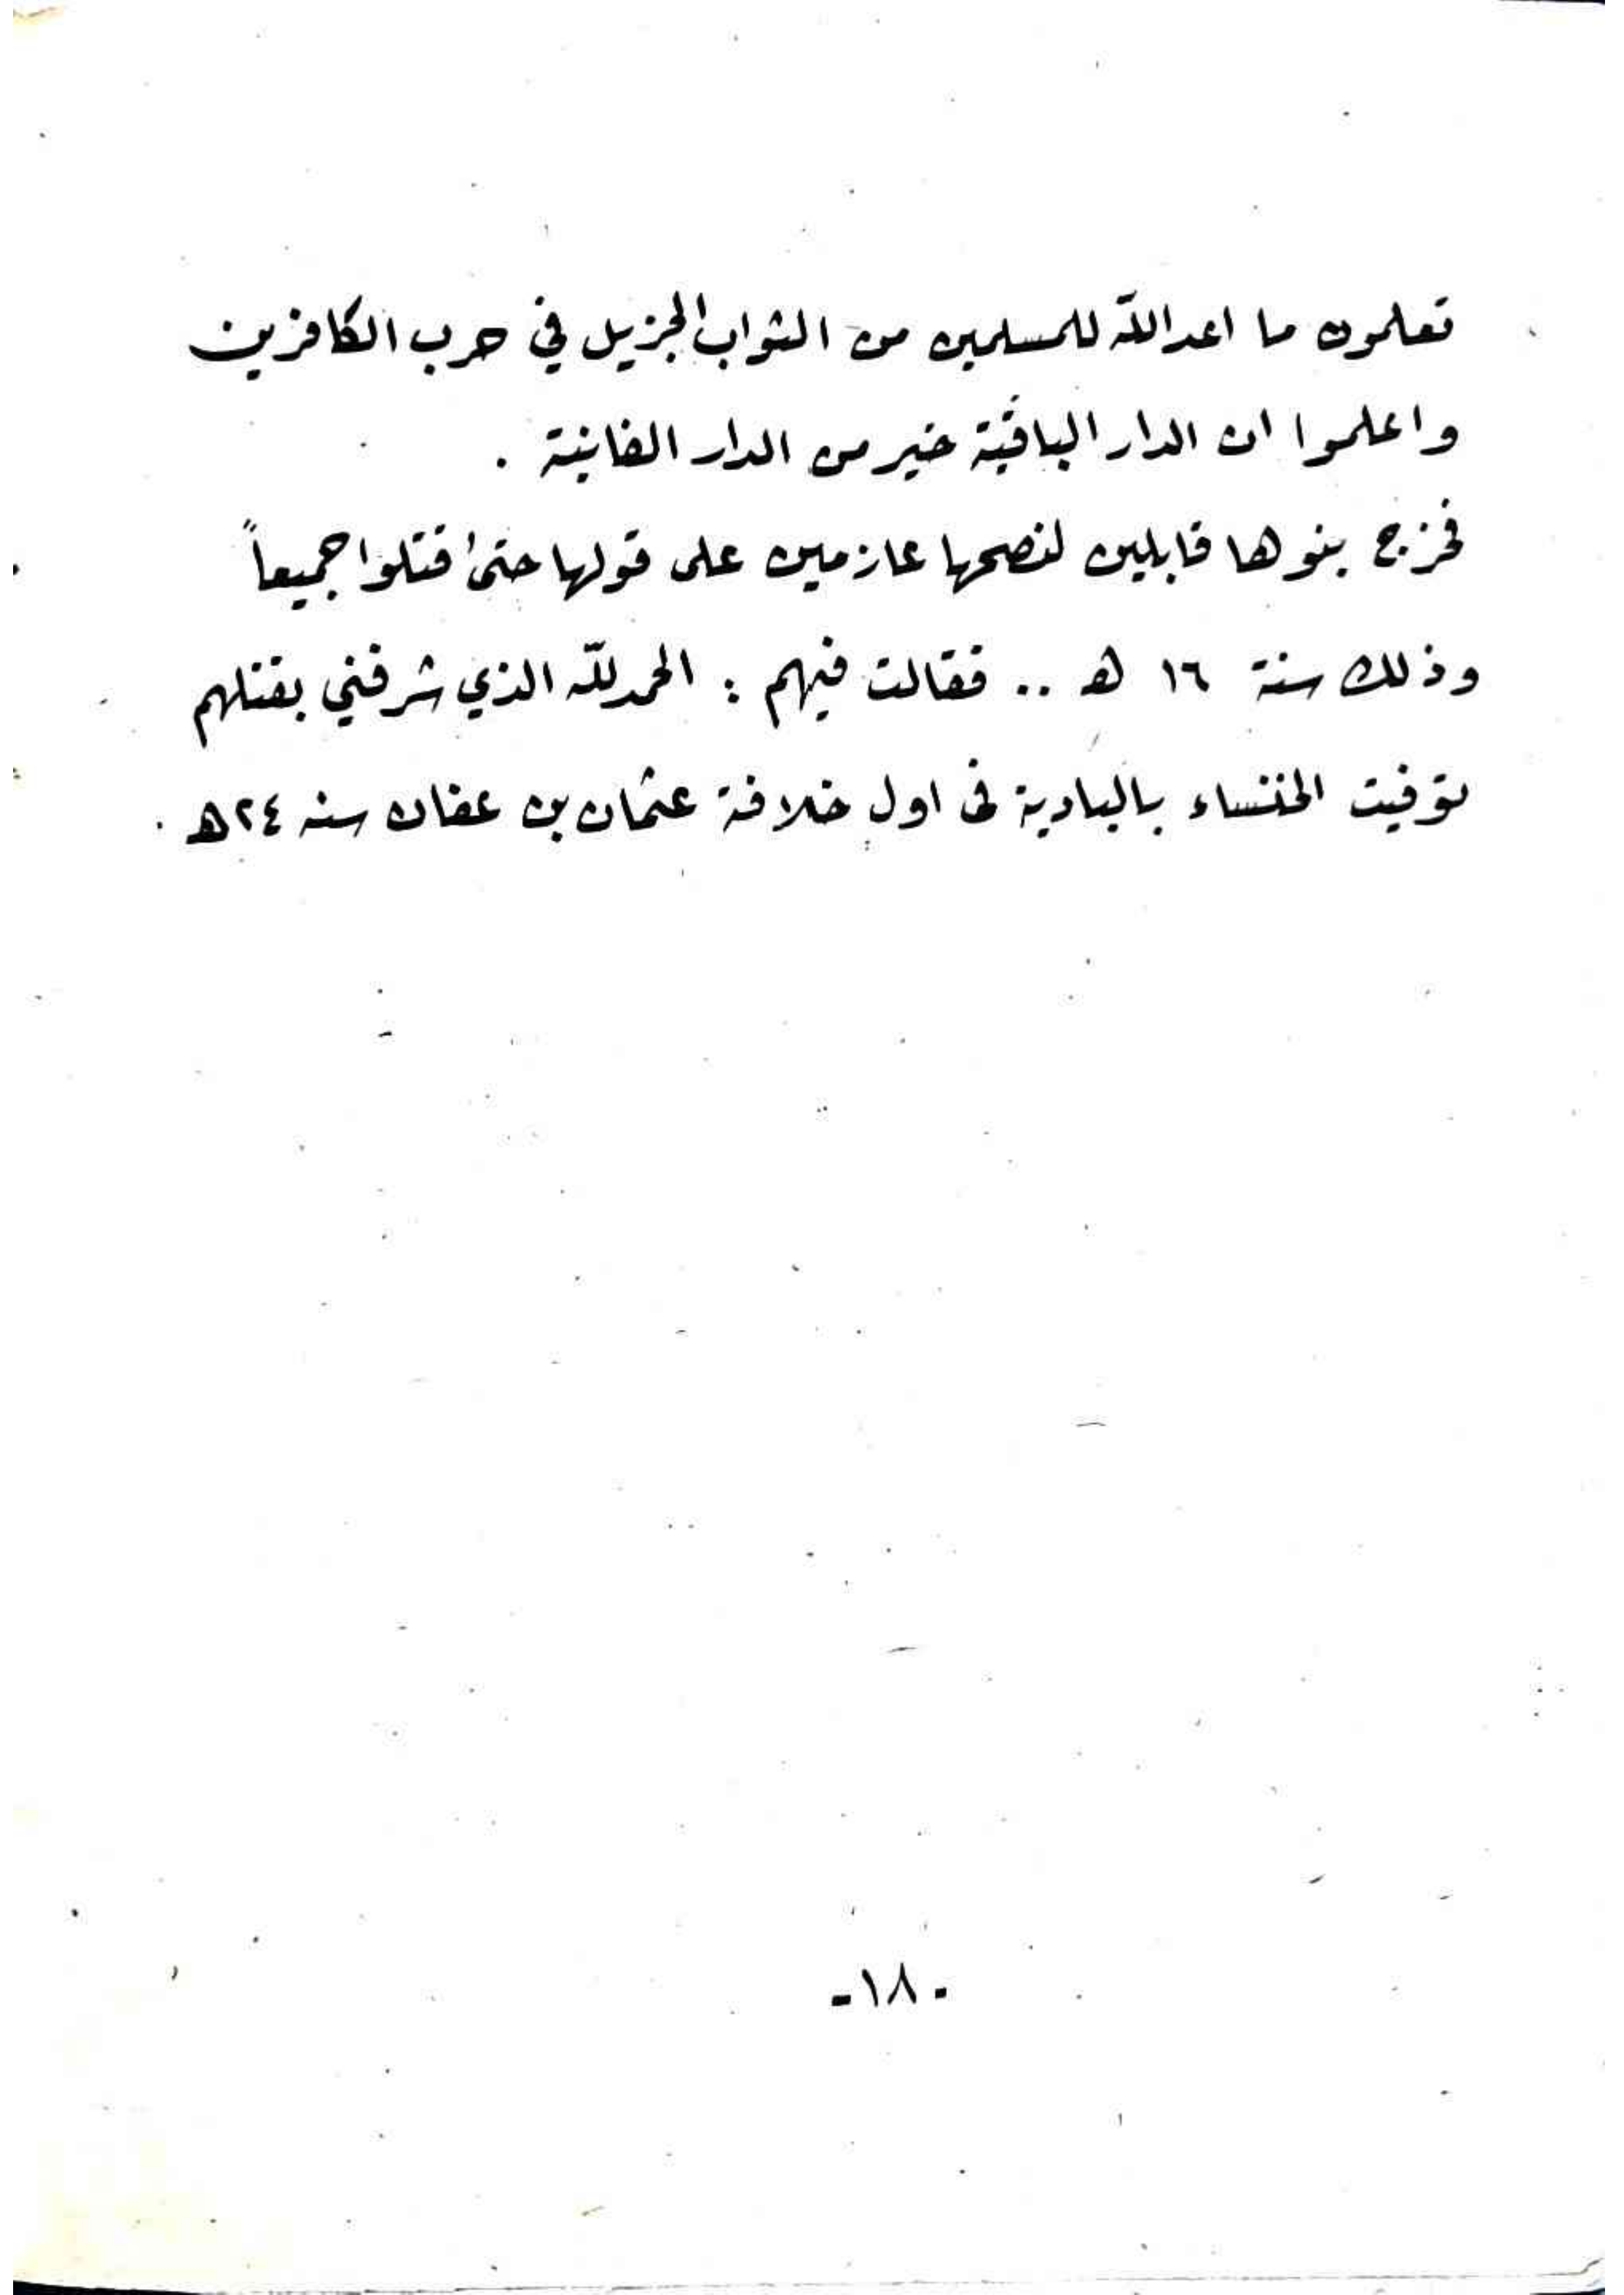 تعلمون ما اعد الله للمسلمين من الثواب الجزيل في حرب الكافرين
واعلموا ان الدار الباقية خير من الدار الفانية .
فخرج بنوها قابلين لنصحها عازمين على قولها حتى قتلوا جميعاً
وذلك سنة ١٦ هـ .. فقالت فيهم : الحمد لله الذي شرفني بقتلهم
توفيت الخنساء بالبادية فى اول خلافة عثمان بن عفان سنه ٢٤ هـ .
-١٨-